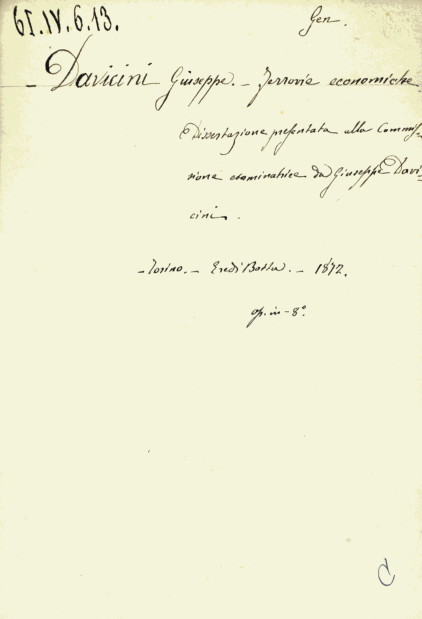 61.IV.6.13.
Gen.
- Davicini Giuseppe. - Ferrovie economiche.
Dissertazione presentata alla Commis-
sione esaminatrice da Giuseppe Davi-
cini.
- Torino. - Eredi Botta. - 1872.
op. in-8°.